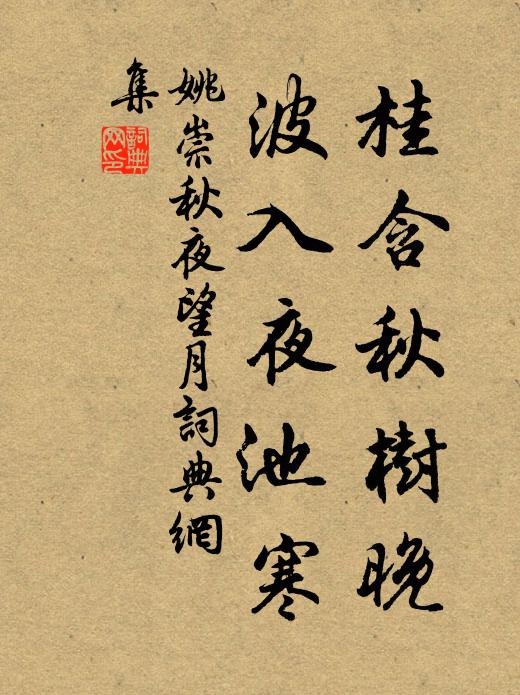 桂含秋樹晚
波入夜池寒
姚崇秋夜望月詞典網
集
詞典網印